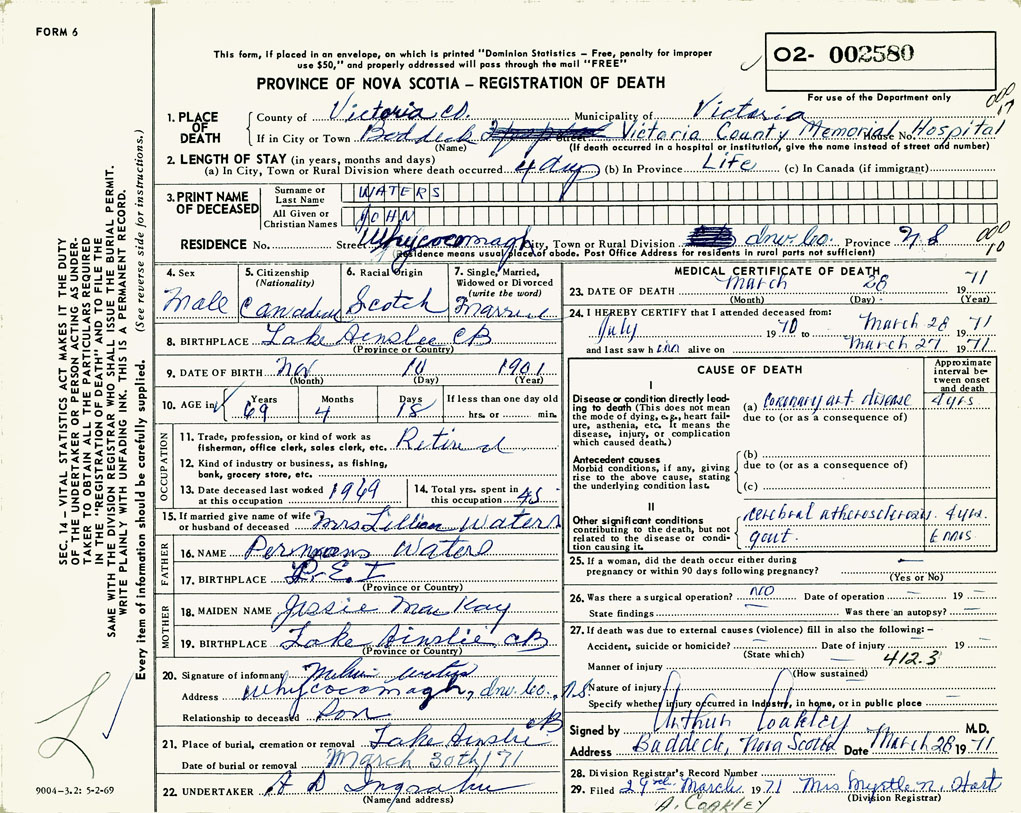 FORM 6
This form, if placed in an envelope, on which is printed "Dominion Statistics – Free, penalty for improper
use $50," and properly addressed will pass through the mail "FREE"
PROVINCE OF NOVA SCOTIA – REGISTRATION OF DEATH
O2- 002580
For use of the Department only
000
17
SEC. 14 – VITAL STATISTICS ACT MAKES IT THE DUTY
OF THE UNDERTAKER OR PERSON ACTING AS UNDER-
TAKER TO OBTAIN ALL THE PARTICULARS REQUIRED
IN THE "REGISTRATION OF DEATH" AND TO FILE THE
SAME WITH THE DIVISION REGISTRAR WHO SHALL ISSUE THE BURIAL PERMIT.
WRITE PLAINLY WITH UNFADING INK. THIS IS A PERMANENT RECORD.
Every item of information should be carefully supplied. (See reverse side for instructions.)
1. PLACE OF DEATH
County of Victoria Co. Municipality of Victoria
If in City or Town Baddeck Street Victoria County Memorial House No. Hospital
(Name) (If death occurred in a hospital or institution, give the name instead of street and number)
2. LENGTH OF STAY (in years, months and days)
(a) In City, Town or Rural Division where death occurred 4 days (b) In Province Life (c) In Canada (if immigrant)
3. PRINT NAME OF DECEASED
Surname or Last Name WATERS
All Given or Christian Names JOHN
RESIDENCE No. Street Whycocomagh City, Town or Rural Division Inv. Co. Province N S
(Residence means usual place of abode. Post Office Address for residents in rural parts not sufficient)
000
10
4. Sex Male
5. Citizenship (Nationality) Canadian
6. Racial Origin Scotch
7. Single, Married, Widowed or Divorced (write the word) Married
8. BIRTHPLACE Lake Ainslee CB
(Province or Country)
9. DATE OF BIRTH Nov 10 1901
(Month) (Day) (Year)
10. AGE in Years 69 Months 4 Days 18 If less than one day old hrs. or min.
OCCUPATION
11. Trade, profession, or kind of work as
fisherman, office clerk, sales clerk, etc. Retired
12. Kind of industry or business, as fishing,
bank, grocery store, etc.
13. Date deceased last worked at this occupation 1969
14. Total yrs. spent in this occupation 45
15. If married give name of wife
or husband of deceased Mrs Lillian Waters
FATHER
16. NAME Waters
17. BIRTHPLACE P.E.I
(Province or Country)
MOTHER
18. MAIDEN NAME Jessie MacKay
19. BIRTHPLACE Lake Ainslie, CB
(Province or Country)
20. Signature of informant Waters
Address Whycocomagh, Inv. Co., N.S.
Relationship to deceased Son
21. Place of burial, cremation or removal Lake Ainslie CB
Date of burial or removal March 30th/71
22. UNDERTAKER A D Ingraham
(Name and address)
9004-3.2: 5-2-69
MEDICAL CERTIFICATE OF DEATH
23. DATE OF DEATH March 28 1971
(Month) (Day) (Year)
24. I HEREBY CERTIFY that I attended deceased from:
July 1970 to March 28 1971
and last saw him alive on March 27 1971
CAUSE OF DEATH
Approximate interval between onset and death
I
Disease or condition directly lead-
ing to death (This does not
mean the mode of dying, e.g., heart fail-
ure, asthenia, etc. It means the
disease, injury, or complication
which caused death.)
(a) Coronary art. disease 4 yrs
due to (or as a consequence of)
Antecedent causes
Morbid conditions, if any, giving
rise to the above cause, stating
the underlying condition last.
(b)
due to (or as a consequence of)
(c)
II
Other significant conditions
contributing to the death, but not
related to the disease or condi-
tion causing it.
cerebral atherosclerosis. 4 yrs.
gout.
25. If a woman, did the death occur either during
pregnancy or within 90 days following pregnancy? –
(Yes or No)
26. Was there a surgical operation? NO Date of operation – 19 –
State findings – Was there an autopsy? –
27. If death was due to external causes (violence) fill in also the following: –
Accident, suicide or homicide? – Date of injury – 19 –
(State which) 412.3
Manner of injury
(How sustained)
Nature of injury
Specify whether injury occurred in Industry, in home, or in public place
Signed by Arthur Coakley M.D.
Address Baddeck, Nova Scotia Date March 28 1971
28. Division Registrar's Record Number
29. Filed 29 March 1971 Mrs Myrtle N. Hart
(Division Registrar)
A. COAKLEY